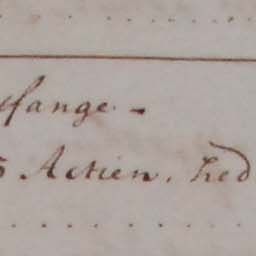 fange. -
5 Actien. hed